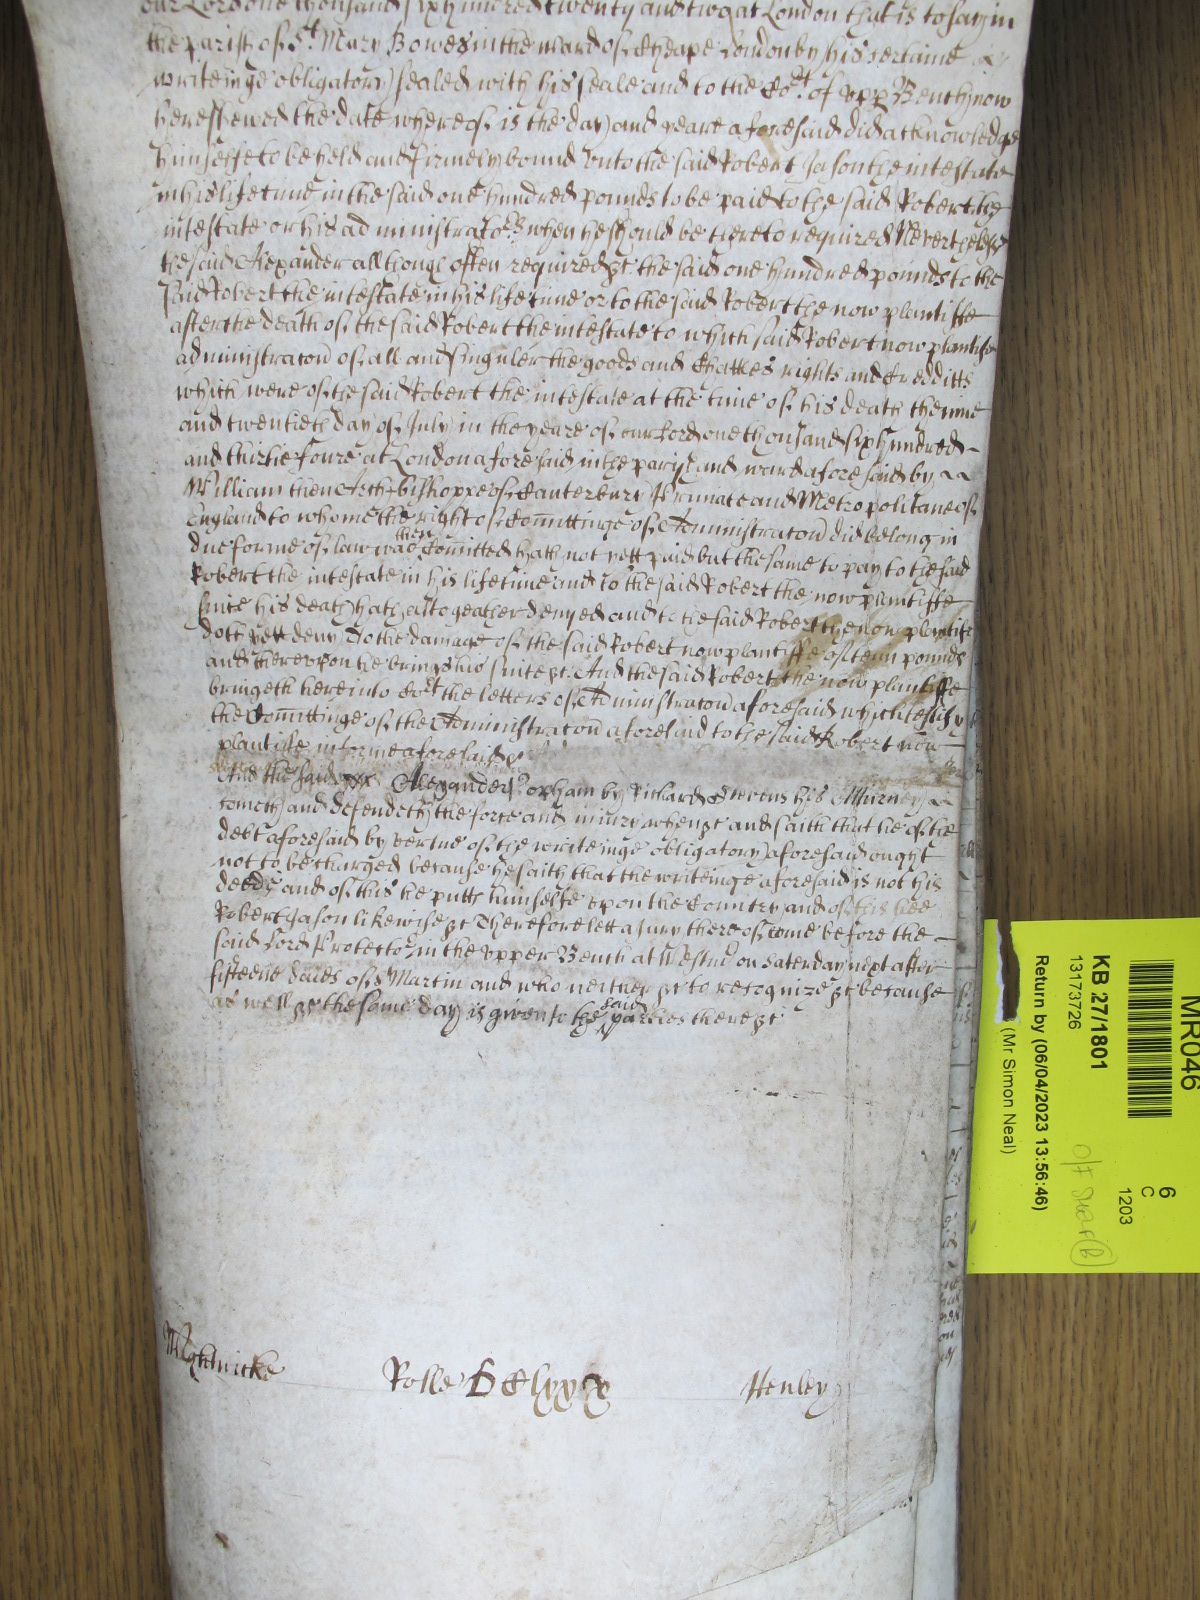 our Lord one thousand six hundred twenty and two at London that is to say in
the parish of St Mary Bowes in the ward of Cheape London by his certaine
writeinge obligatory sealed with his seale and to the Cort of vpp Bench now
here shewed the date whereof is the day and yeare aforesaid did acknowledge
himselfe to be held and firmely bound vnto the said Robert Jason the intestate
in his life time in the said one hundred pounds to be paid to the said Robert the
intestate or his administrators when he should be thereto required Neverthelesse
the said Alexander although often required &c the said one hundred pounds to the
said Robert the intestate in his life time or to the said Robert the now plantiffe
after the death of the said Robert the intestate to which said Robert now plantiffe
administracon of all and singuler the goods and Chattles rights and Creditts
which were of the said Robert the intestate at the time of his death the nine
and twentieth day of July in the yeare of our Lord one thousand six hundred
and thirtie foure at London aforesaid in the parish and ward aforesaid by
William then Arch-bishoppe of Canterbury Primate and Metropolitane of
England to whome the right of Comittinge of Administracon did belong in
due forme of law was then Comitted hath not yett paid but the same to pay to the said
Robert the intestate in his life time and to the said Robert the now plantiffe
since his death hath altogeather denyed and to the said Robert the now plantife
doth yett deny To the damage of the said Robert now plantiffe of tenn pounds
and thereupon he brings his suite &c And the said Robert the now plantiffe
bringeth here into Cort the letters of Administracon aforesaid which testify
the Comittinge of the Administracon aforesaid to the said Robert now
plantiffe in forme aforesaid &c
And the said Alexander Popham by Richard Stevens his Atturney
cometh and defendeth the force and iniury when &c and saith that he of the
debt aforesaid by vertue of the writeinge obligatory aforesaid ought
not to be charged because he saith that the writeinge aforesaid is not his
deede and of this he putts himselfe vpon the Country and of this hee
Robert Jason likewise &c Therefore lett a Jury thereof come before the
said Lord Protector in the vpper Bench at Westmr on Saterday next after
fifteene daies of St Martin and who neither &c to recognize &c because
as well &c the same day is given to the said parties there &c
Rolle CClxxx
Henley
MR046
KB 27/1801
13173726
Return by (06/04/2023 13:56:46)
(Mr Simon Neal)
6
C
1203